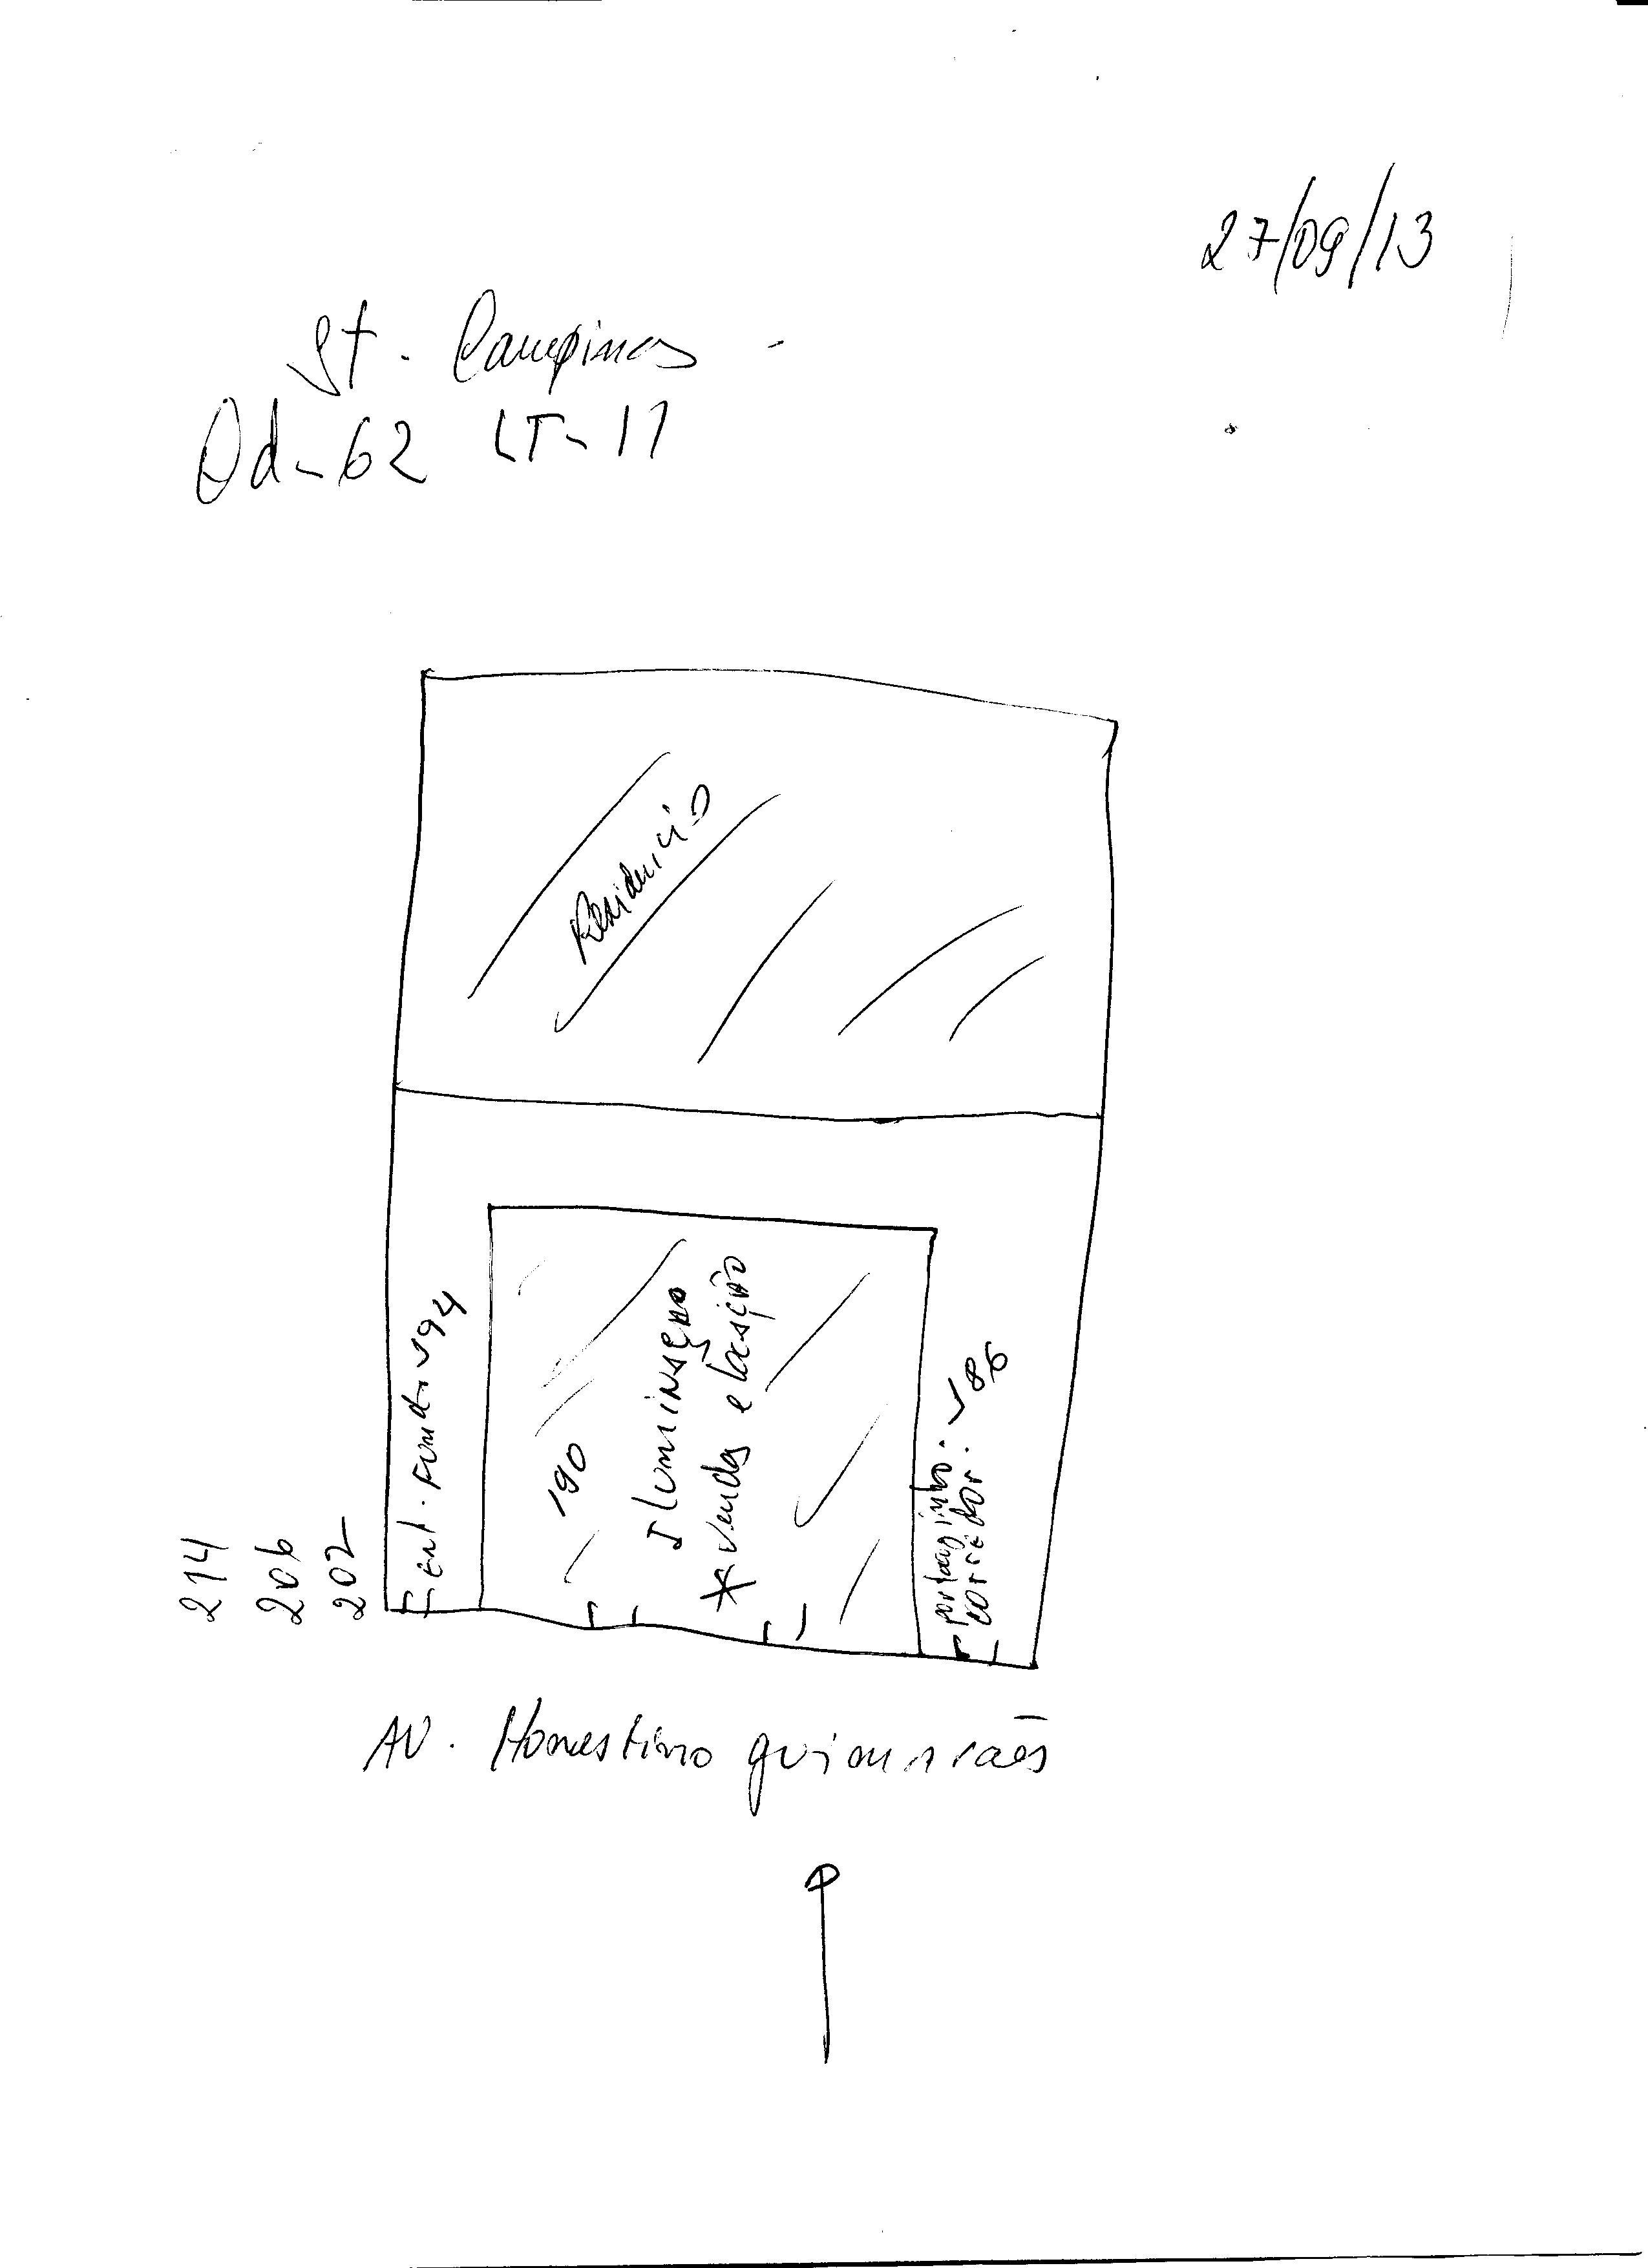 27/09/13
St. Campinas
Qd-62 LT-11
Residencia
Ent. Fundo 194
190
Iluminação
* Vendas e locação
portaozinho: 186
corredor:
214
206
202
AV. Honestino guimarães